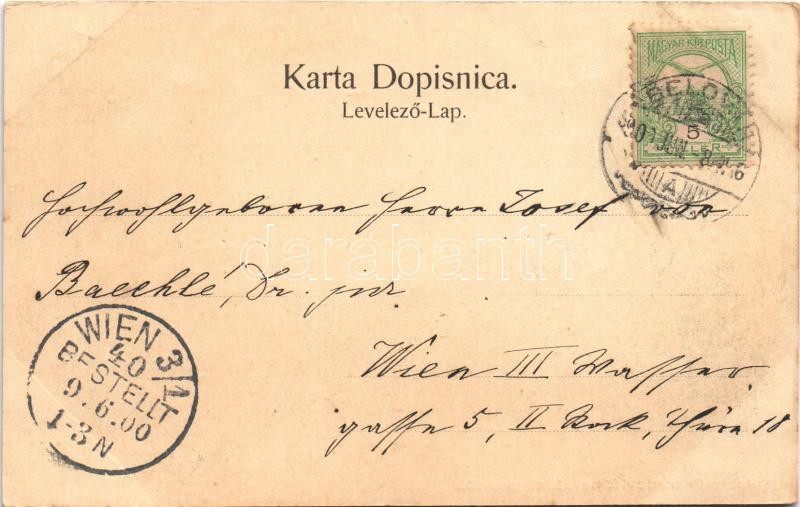 Karta Dopisnica.
Levelező-Lap.
MAGYAR KIR. POSTA
5
Hochwohlgeboren Herrn Josef von
Baechlé, Dr. jur
Wien III Wasser
gasse 5, II Stock, Thüre 18
WIEN 3/1
40
BESTELLT
9.6.00
1-3N
darabanth